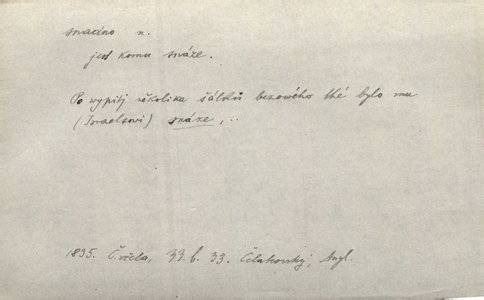 snadno n.
jest komu snáze.
Po wypitj několika šálků bezowého thé bylo mu
(Israelsowi) snáze, ..
1835. Č. včela, 33. Čelakowský, Angl.